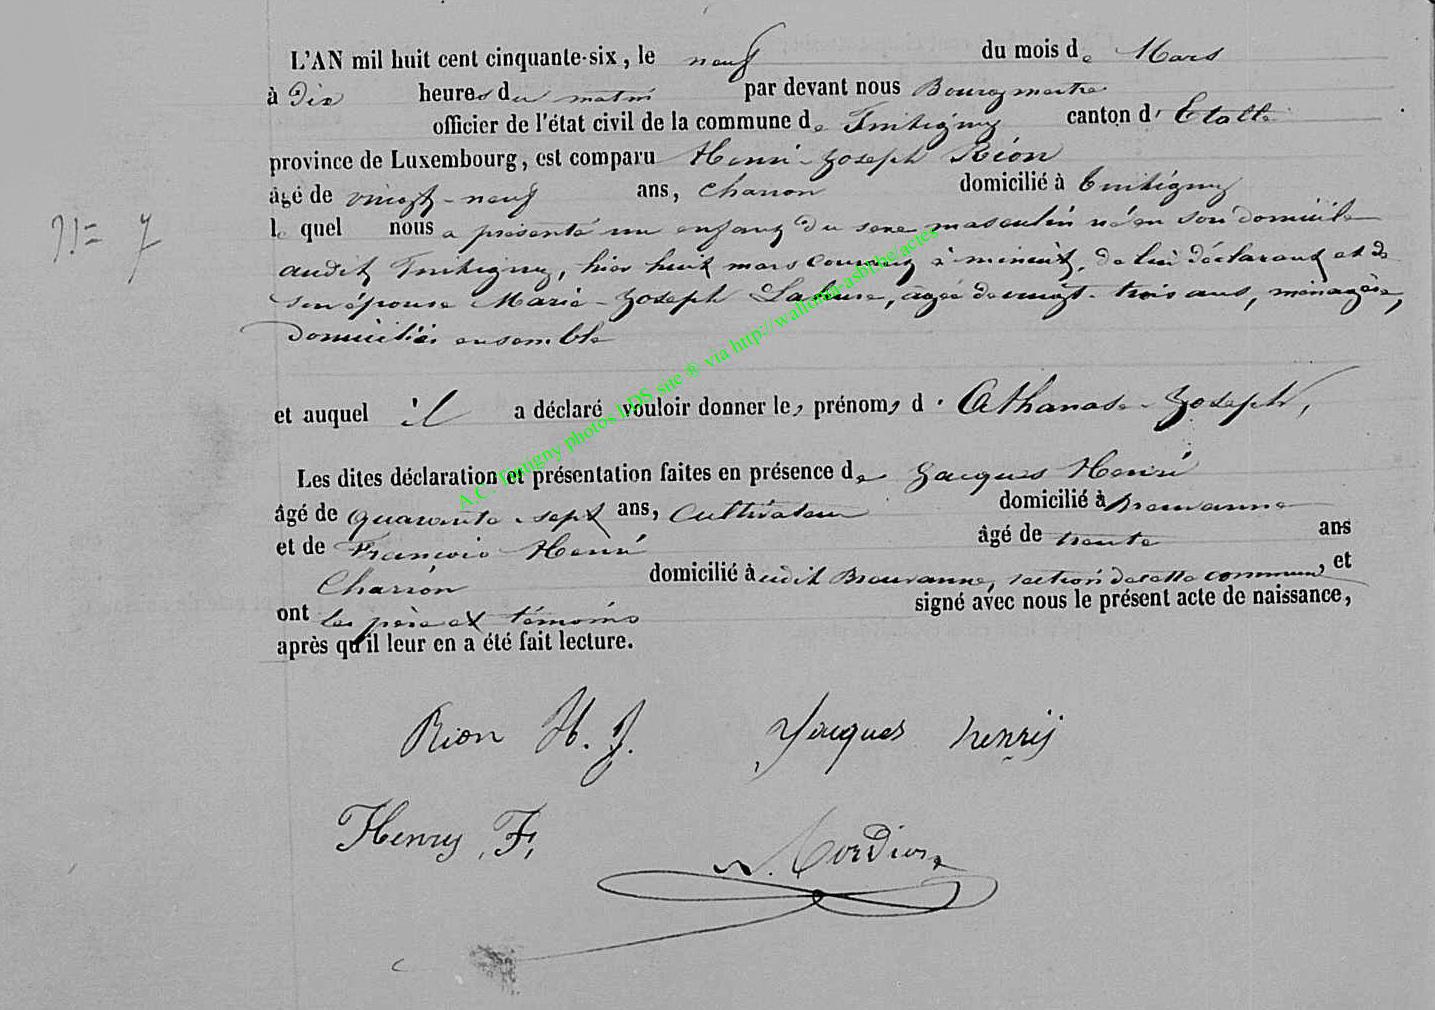 L'AN mil huit cent cinquante-six, le neuf du mois de Mars
à Dix heures du matin par devant nous Bourgmestre
officier de l'état civil de la commune de Tintigny canton d'Etalle
province de Luxembourg, est comparu Henri-Joseph Rion
âgé de vingt-neuf ans, Charron domicilié à Tintigny
N.= 7
le quel nous a présenté un enfant du sexe masculin né en son domicile
audit Tintigny, hier huit mars courant à minuit, de lui déclarant et de
son épouse Marie-Joseph, agée de vingt-trois ans, ménagère,
domiciliés ensemble
et auquel il a déclaré vouloir donner les prénoms d'Athanase-Joseph,
Les dites déclaration et présentation faites en présence de Jacques Henri
âgé de quarante-sept ans, Cultivateur domicilié à Breuvanne
et de François Henri âgé de trente ans
Charron domicilié à udit Breuvanne, section de cette commune, et
ont les père et témoins signé avec nous le présent acte de naissance,
après qu'il leur en a été fait lecture.
Rion H. J. Jacques henrij
Henry, F,
A.C. Tintigny photos LDS site ® via http://wallonia-asbl.be/actes